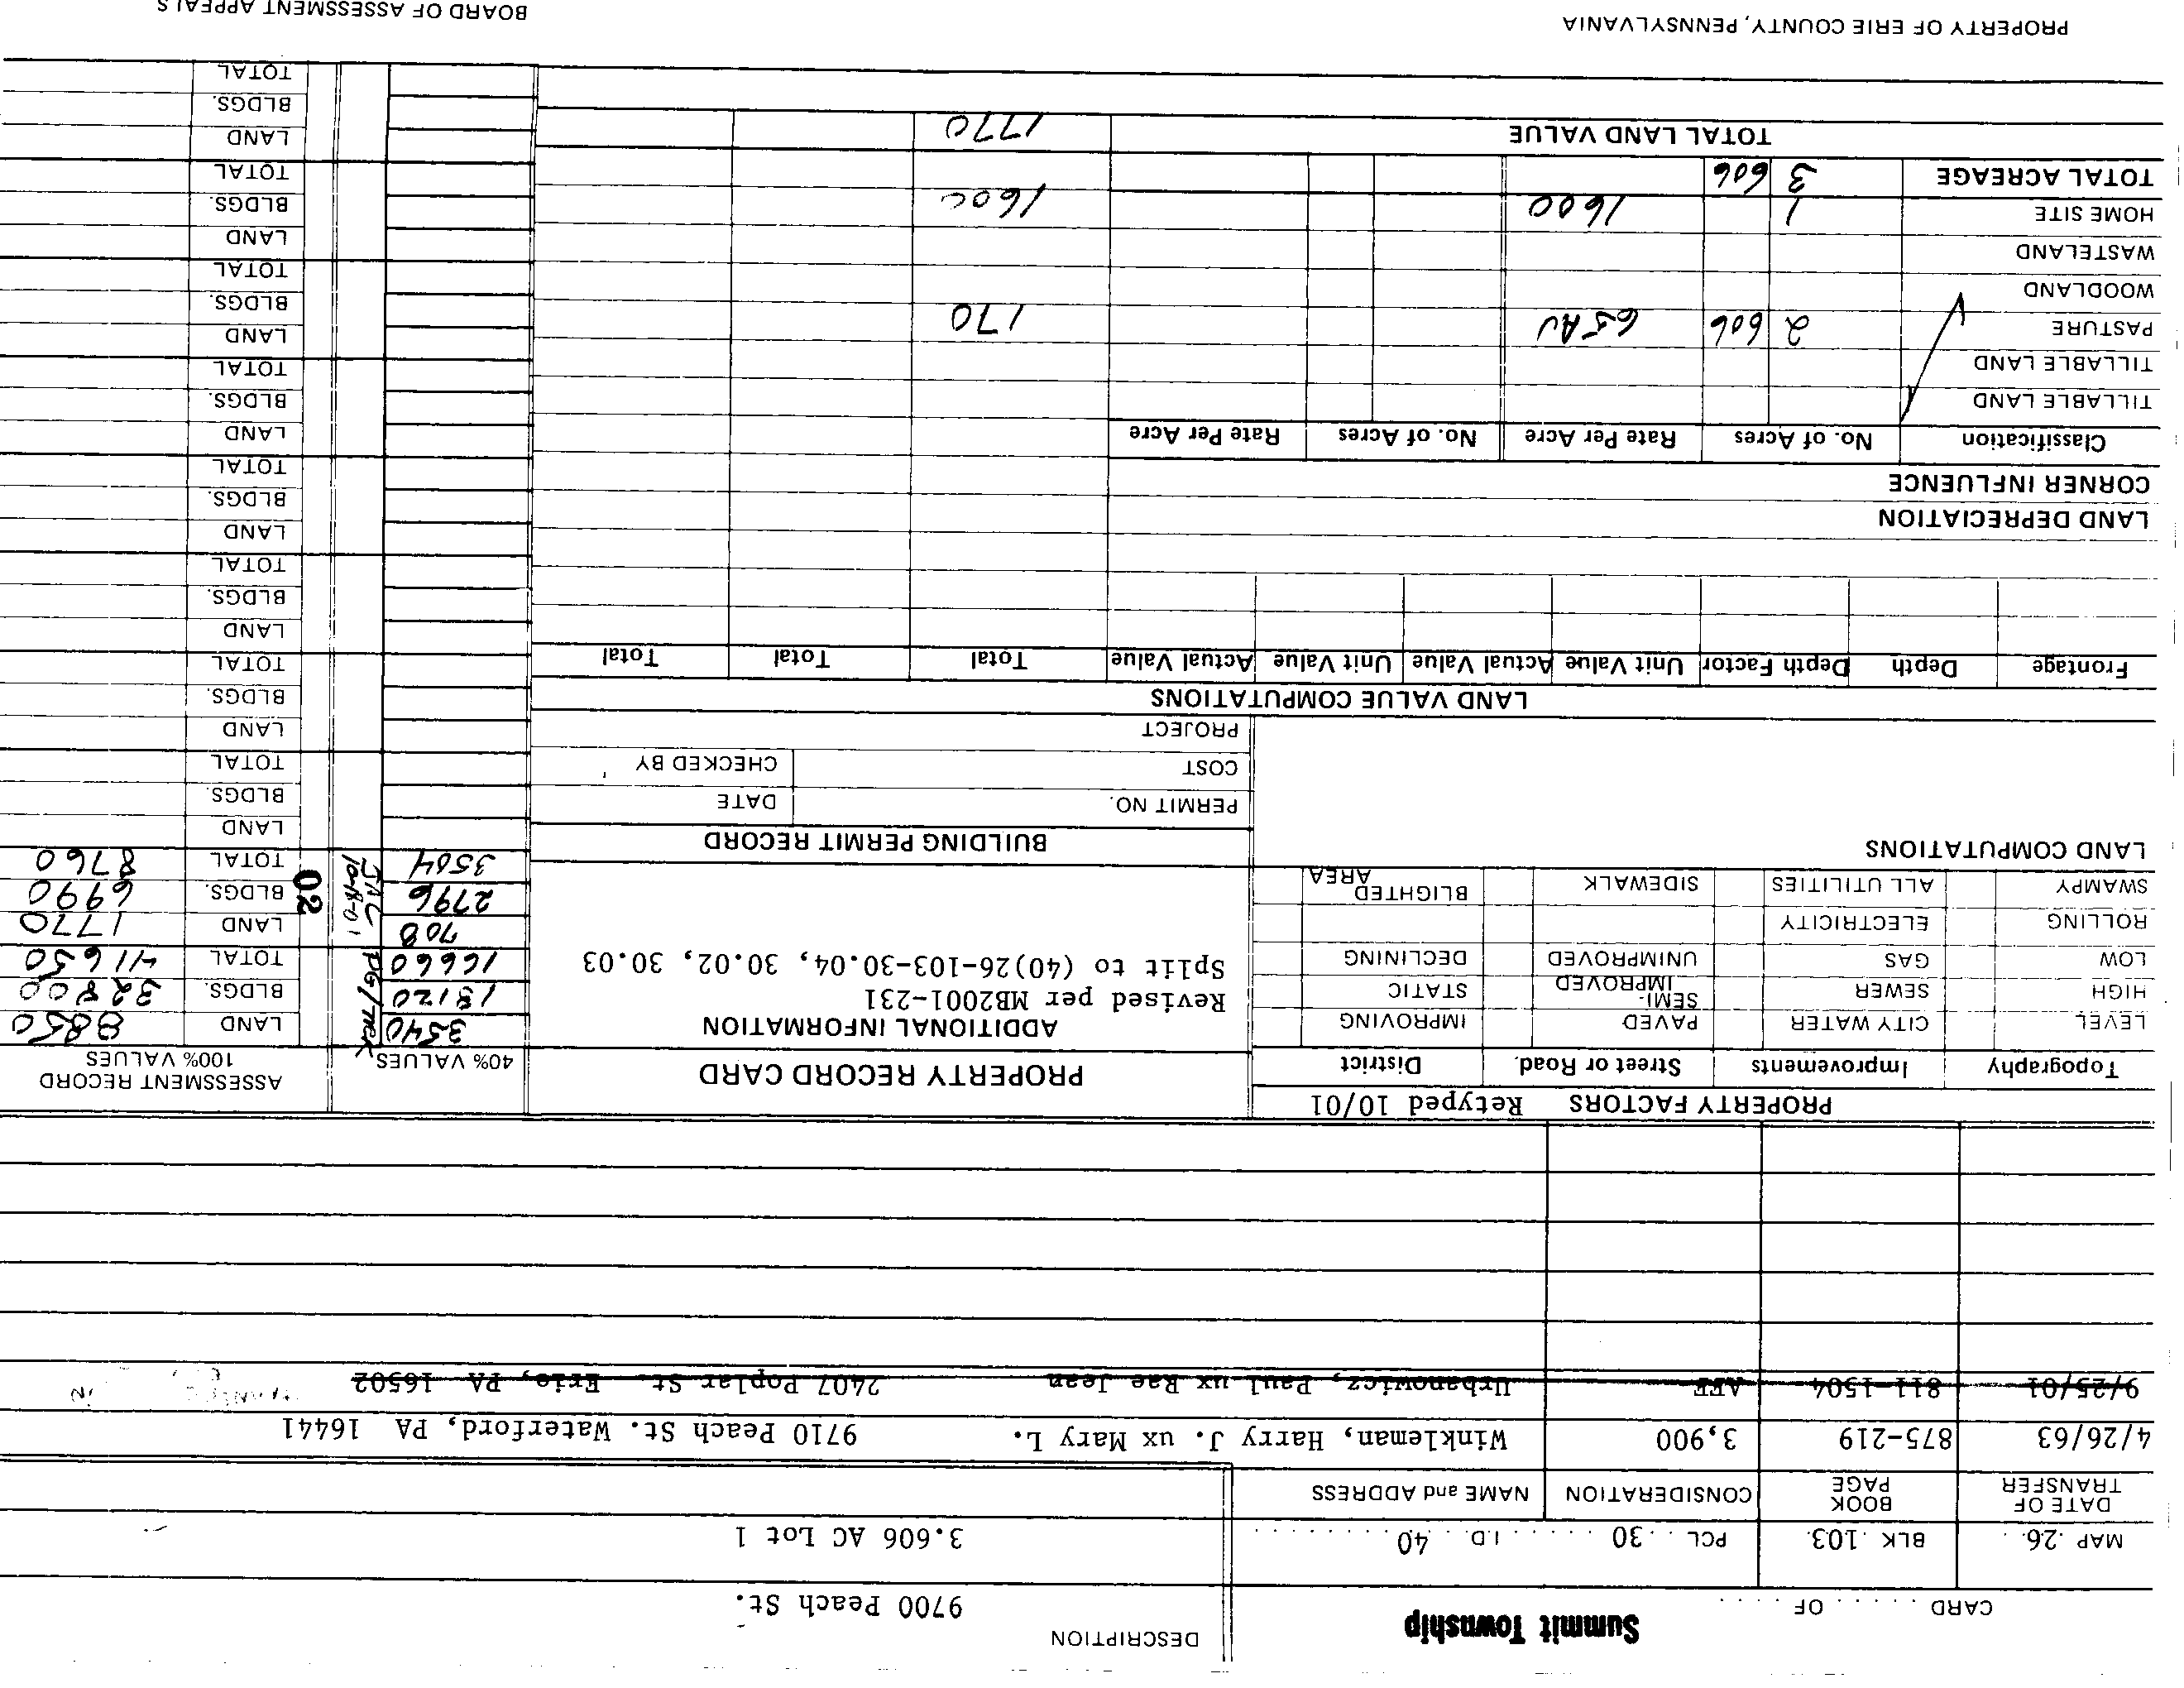 CARD . . . . . OF . . . .
Summit Township
DESCRIPTION
9700 Peach St.
MAP .26. . BLK .103. PCL . . 30 . . . . . . I.D. . 40 . . . . . . . .
3.606 AC Lot 1
DATE OF TRANSFER BOOK PAGE CONSIDERATION NAME and ADDRESS
4/26/63 875-219 3,900 Winkleman, Harry J. ux Mary L. 9710 Peach St. Waterford, PA 16441
9/25/01 811-1504 AFF Urbanowicz, Paul ux Rae Jean 2407 Poplar St. Erie, PA 16502
PROPERTY FACTORS Retyped 10/01
PROPERTY RECORD CARD
40% VALUES
ASSESSMENT RECORD
100% VALUES
Topography Improvements Street or Road. District
LEVEL CITY WATER PAVED IMPROVING
HIGH SEWER SEMI-IMPROVED STATIC
LOW GAS UNIMPROVED DECLINING
ROLLING ELECTRICITY
SWAMPY ALL UTILITIES SIDEWALK BLIGHTED AREA
ADDITIONAL INFORMATION
Revised per MB2001-231
Split to (40)26-103-30.04, 30.02, 30.03
3540 LAND 8850
13120 BLDGS. 32800
16660 TOTAL 41650
708 LAND 1770
2796 BLDGS. 6990
3504 TOTAL 8760
02
LAND COMPUTATIONS
BUILDING PERMIT RECORD
PERMIT NO. DATE
COST CHECKED BY
PROJECT
LAND
BLDGS.
TOTAL
LAND VALUE COMPUTATIONS
Frontage Depth Depth Factor Unit Value Actual Value Unit Value Actual Value Total Total Total
LAND
BLDGS.
TOTAL
LAND
BLDGS.
TOTAL
LAND DEPRECIATION
CORNER INFLUENCE
LAND
BLDGS.
TOTAL
Classification No. of Acres Rate Per Acre No. of Acres Rate Per Acre
TILLABLE LAND
TILLABLE LAND
PASTURE 2 606 65AV 170
WOODLAND
WASTELAND
HOME SITE 1 1600 1600
TOTAL ACREAGE 3 606
TOTAL LAND VALUE 1770
LAND
BLDGS.
TOTAL
LAND
BLDGS.
TOTAL
LAND
BLDGS.
TOTAL
LAND
BLDGS.
TOTAL
PROPERTY OF ERIE COUNTY, PENNSYLVANIA
BOARD OF ASSESSMENT APPEALS